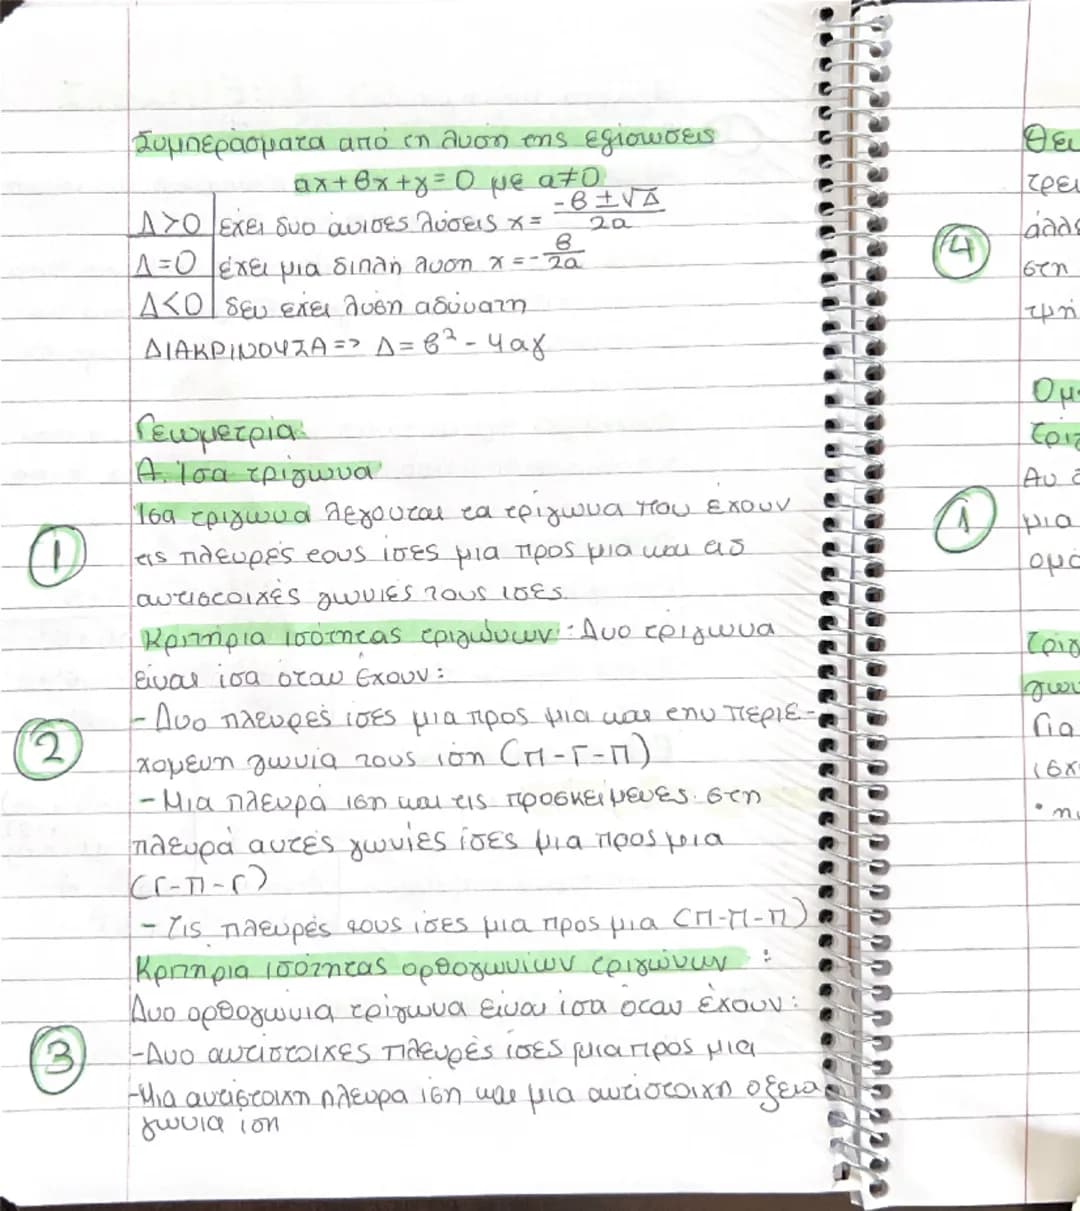 Συμπεράσματα από τη λυση της εξίσωσεις
αx+βx+γ=0 με α≠0
Δ>0 έχει δυο άνισες λύσεις x= -β±√Δ / 2α
Δ=0 έχει μια διπλή λυση x=-β/2α
Δ<0 δεν εχει λυση αδύνατη
ΔΙΑΚΡΙΝΟΥΣΑ => Δ=β²-4αγ
Γεωμετρία:
Α. Ίσα τρίγωνα
① Ίσα τριγωνα λεγονται τα τρίγωνα που έχουν
τις πλευρές τους ίσες μια προς μια και τις
αντιστοιχές γωνιές τους ισες.
Κριτήρια ισότητας τριγώνων: Δυο τριγωνα
είναι ίσα οταν έχουν:
② - Δυο πλευρές ίσες μια προς μια και την περιε-
χομενη γωνία τους ιση (Π-Γ-Π)
- Μια πλευρά ιση και τις προσκείμενες στη
πλευρά αυτές γωνίες ίσες μια προς μια
(Γ-Π-Γ)
- Τις πλευρές τους ίσες μια προς μια (Π-Π-Π)
Κριτηρια ισότητας ορθογωνίων τριγώνων :
Δυο ορθογωνια τρίγωνα είναι ίσα όταν έχουν:
③ -Δυο αντιστοιχες πλευρές ίσες μια προς μια
-Μια αντίστοιχη πλευρα ιση και μια αντιστοιχη οξεια
γωνια ιση
Θε
τρει
④ άλλ
στη
τμή
Ομ
τριγ
Αν
① μια
ομο
Τριγ
γων
Για
ισχ